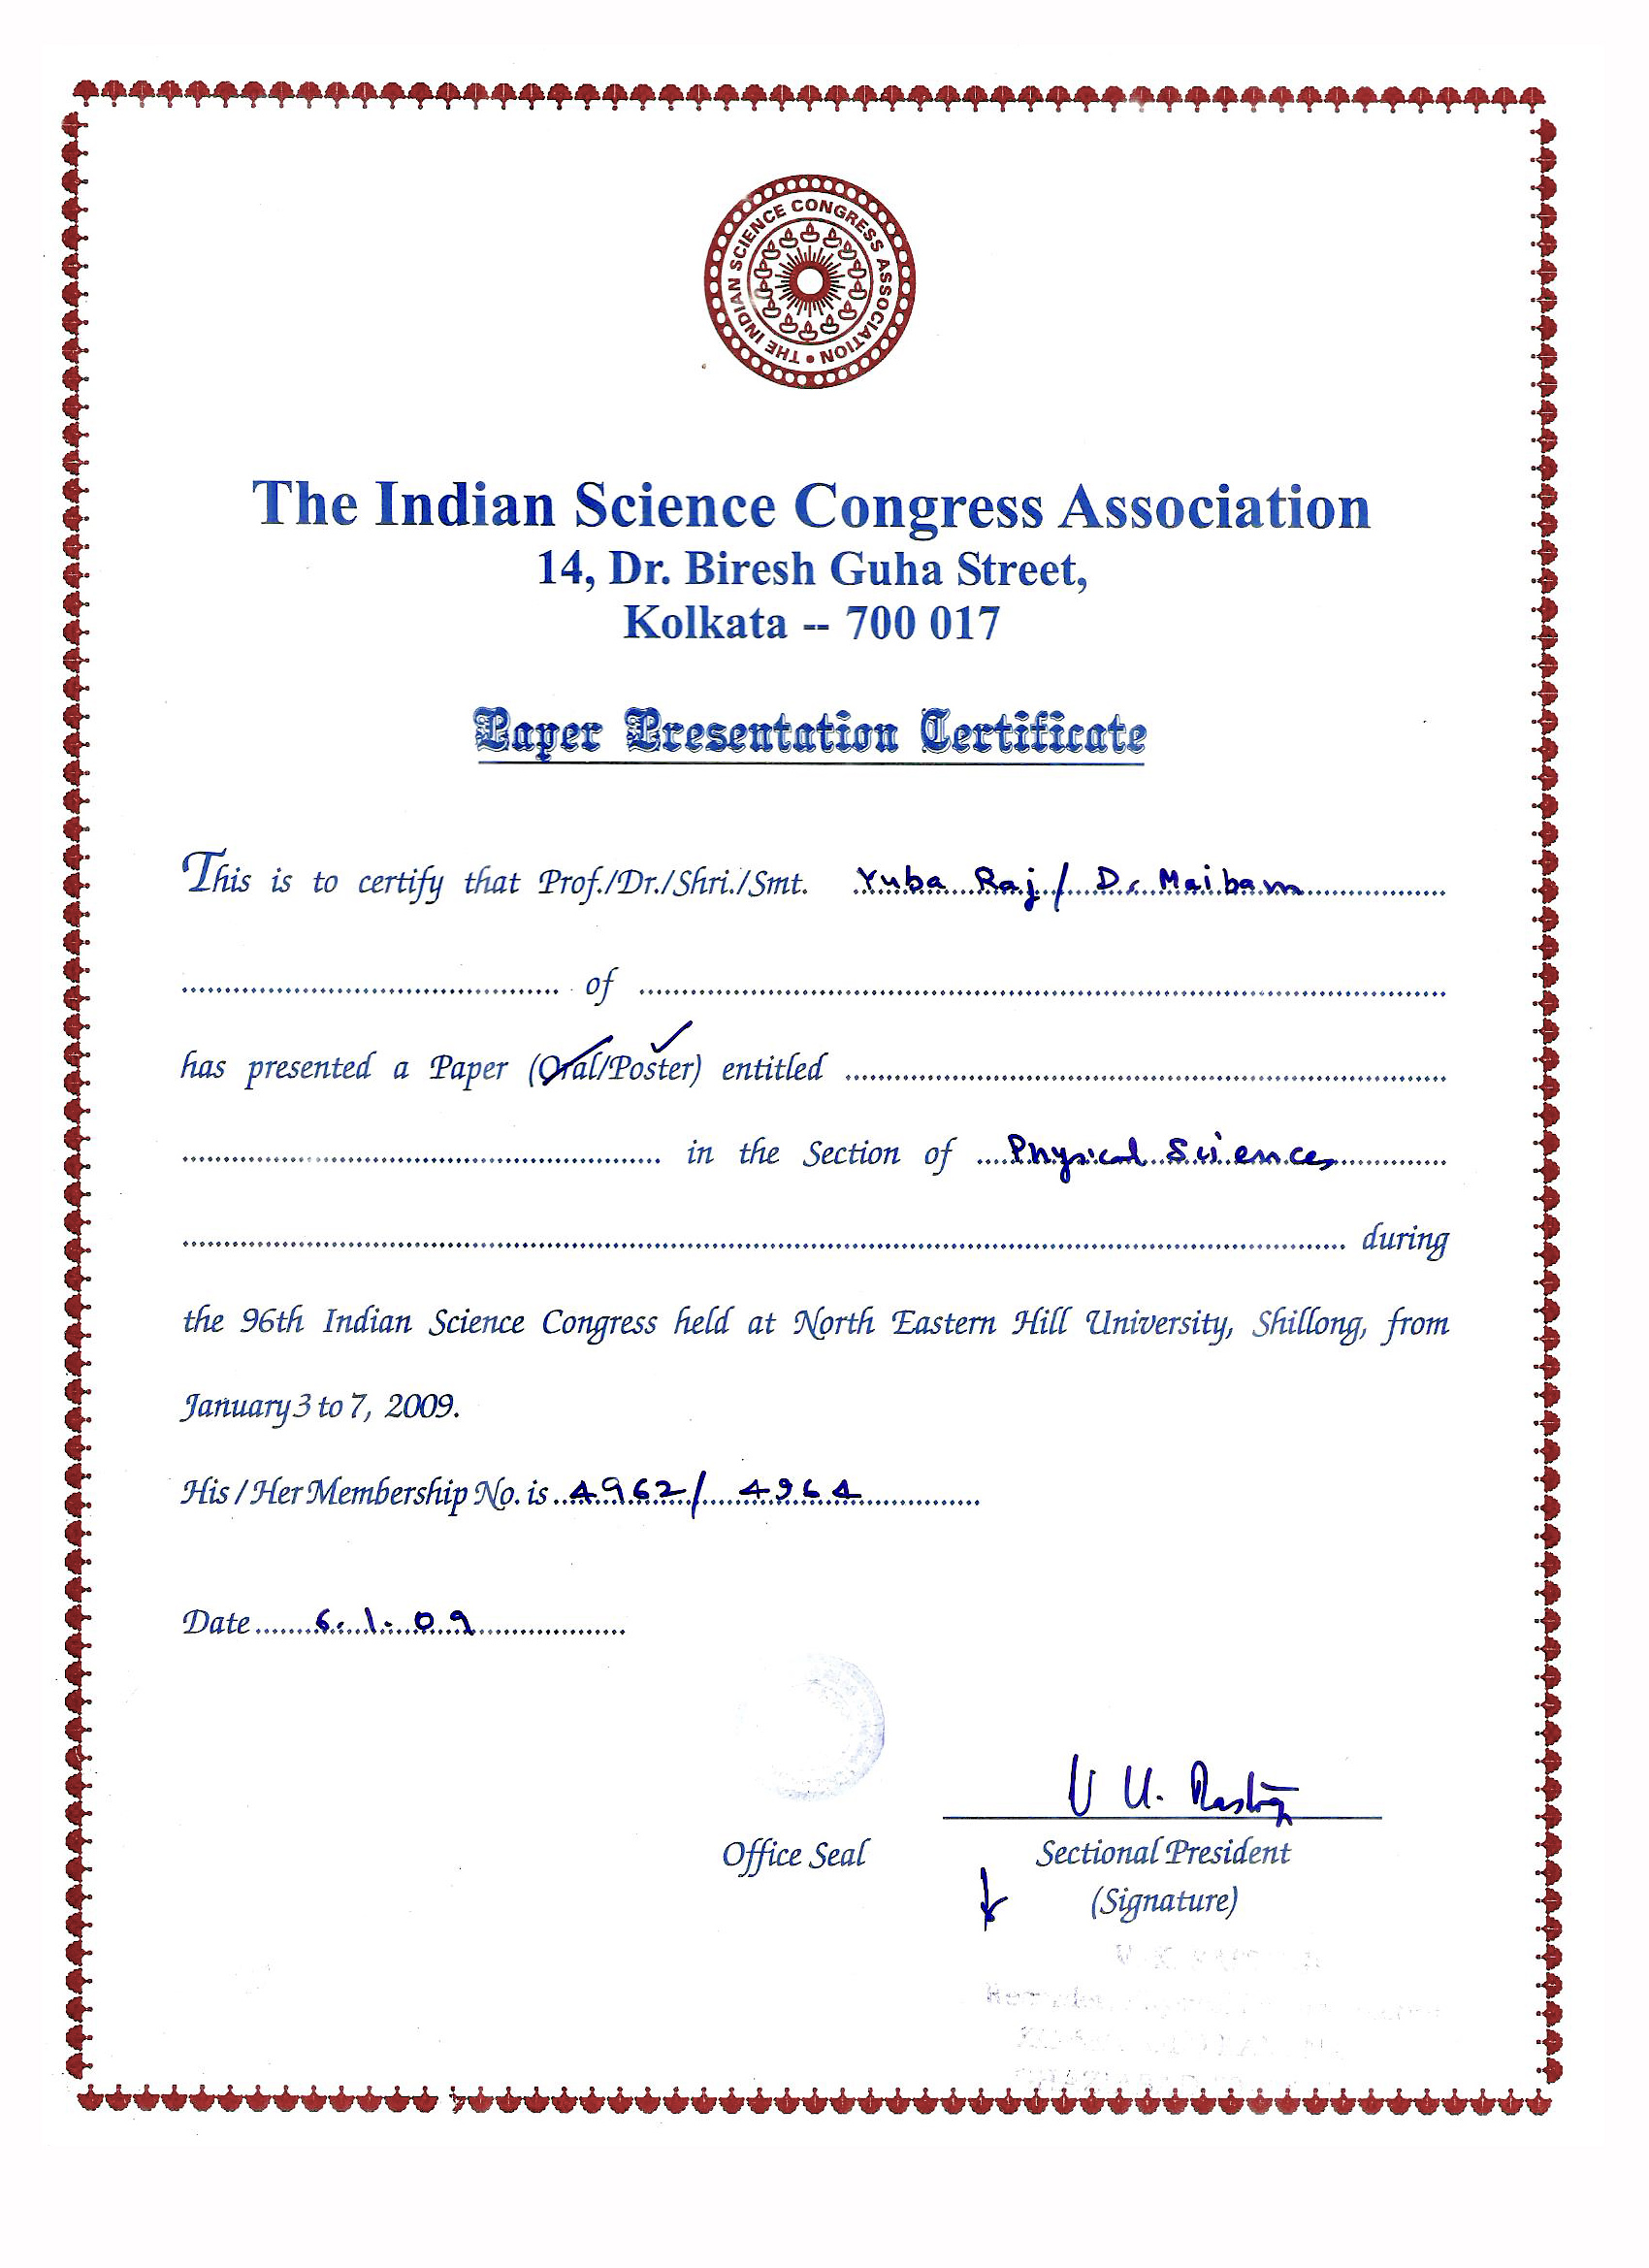 THE INDIAN SCIENCE CONGRESS ASSOCIATION
The Indian Science Congress Association
14, Dr. Biresh Guha Street,
Kolkata -- 700 017
Paper Presentation Certificate
This is to certify that Prof./Dr./Shri./Smt. Yuba Raj / Dr Maibam
of
has presented a Paper (Oral/Poster) entitled
in the Section of Physical Sciences
during
the 96th Indian Science Congress held at North Eastern Hill University, Shillong, from
January 3 to 7, 2009.
His / Her Membership No. is 4962/ 4964
Date 6.1.09
V U. Rastogi
Office Seal Sectional President
(Signature)